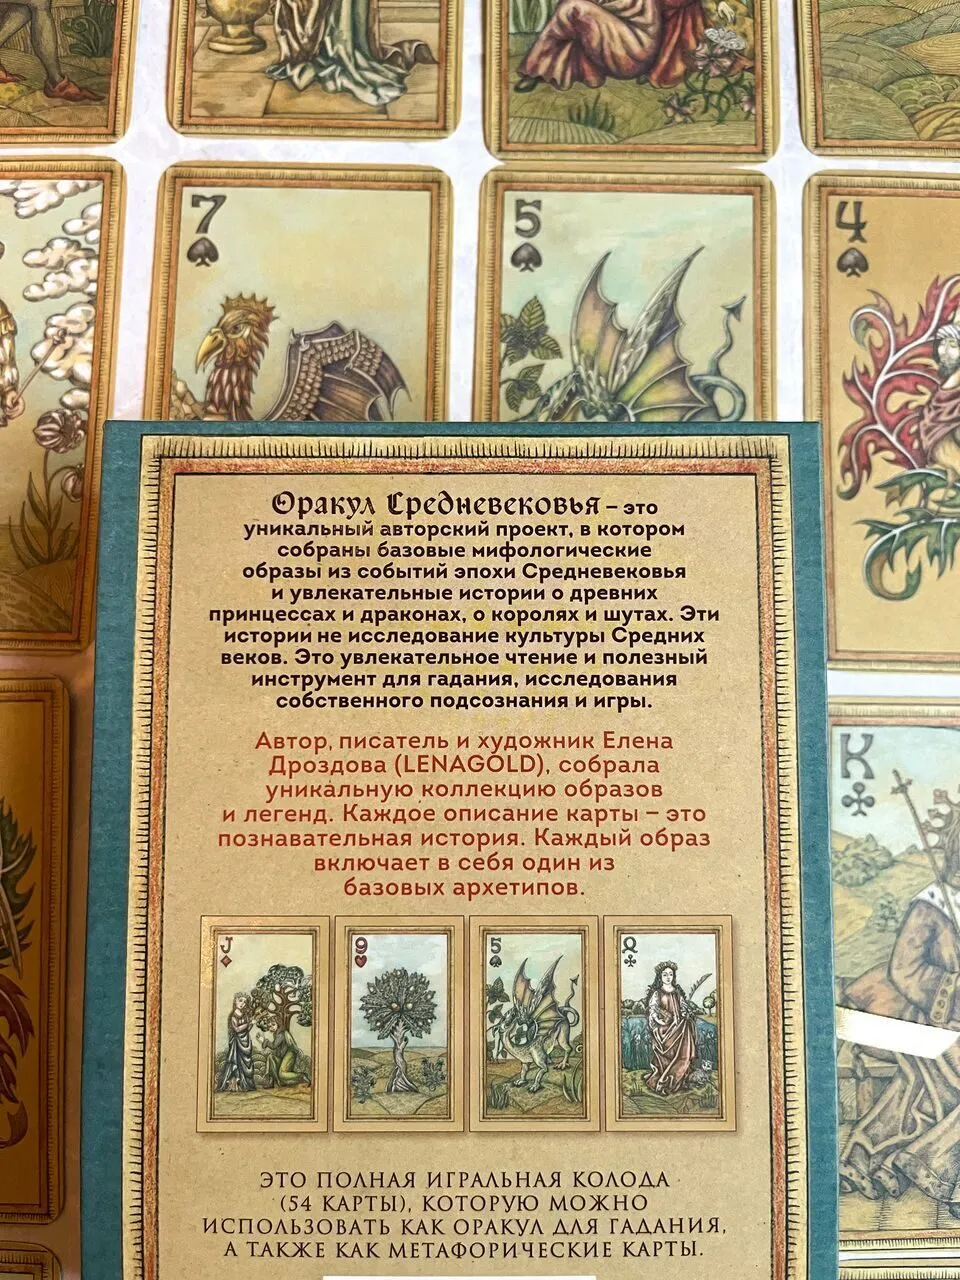 7
5
4
Оракул Средневековья – это
уникальный авторский проект, в котором
собраны базовые мифологические
образы из событий эпохи Средневековья
и увлекательные истории о древних
принцессах и драконах, о королях и шутах. Эти
истории не исследование культуры Средних
веков. Это увлекательное чтение и полезный
инструмент для гадания, исследования
собственного подсознания и игры.
K
Автор, писатель и художник Елена
Дроздова (LENAGOLD), собрала
уникальную коллекцию образов
и легенд. Каждое описание карты – это
познавательная история. Каждый образ
включает в себя один из
базовых архетипов.
J 9 5 Q
ЭТО ПОЛНАЯ ИГРАЛЬНАЯ КОЛОДА
(54 КАРТЫ), КОТОРУЮ МОЖНО
ИСПОЛЬЗОВАТЬ КАК ОРАКУЛ ДЛЯ ГАДАНИЯ,
А ТАКЖЕ КАК МЕТАФОРИЧЕСКИЕ КАРТЫ.